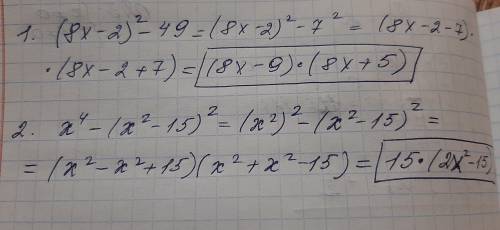 1. (8x-2)²-49=(8x-2)²-7²= (8x-2-7)·
·(8x-2+7)=(8x-9)·(8x+5)
2. x⁴-(x²-15)²=(x²)²-(x²-15)²=
=(x²-x²+15)(x²+x²-15)=15·(2x²-15)